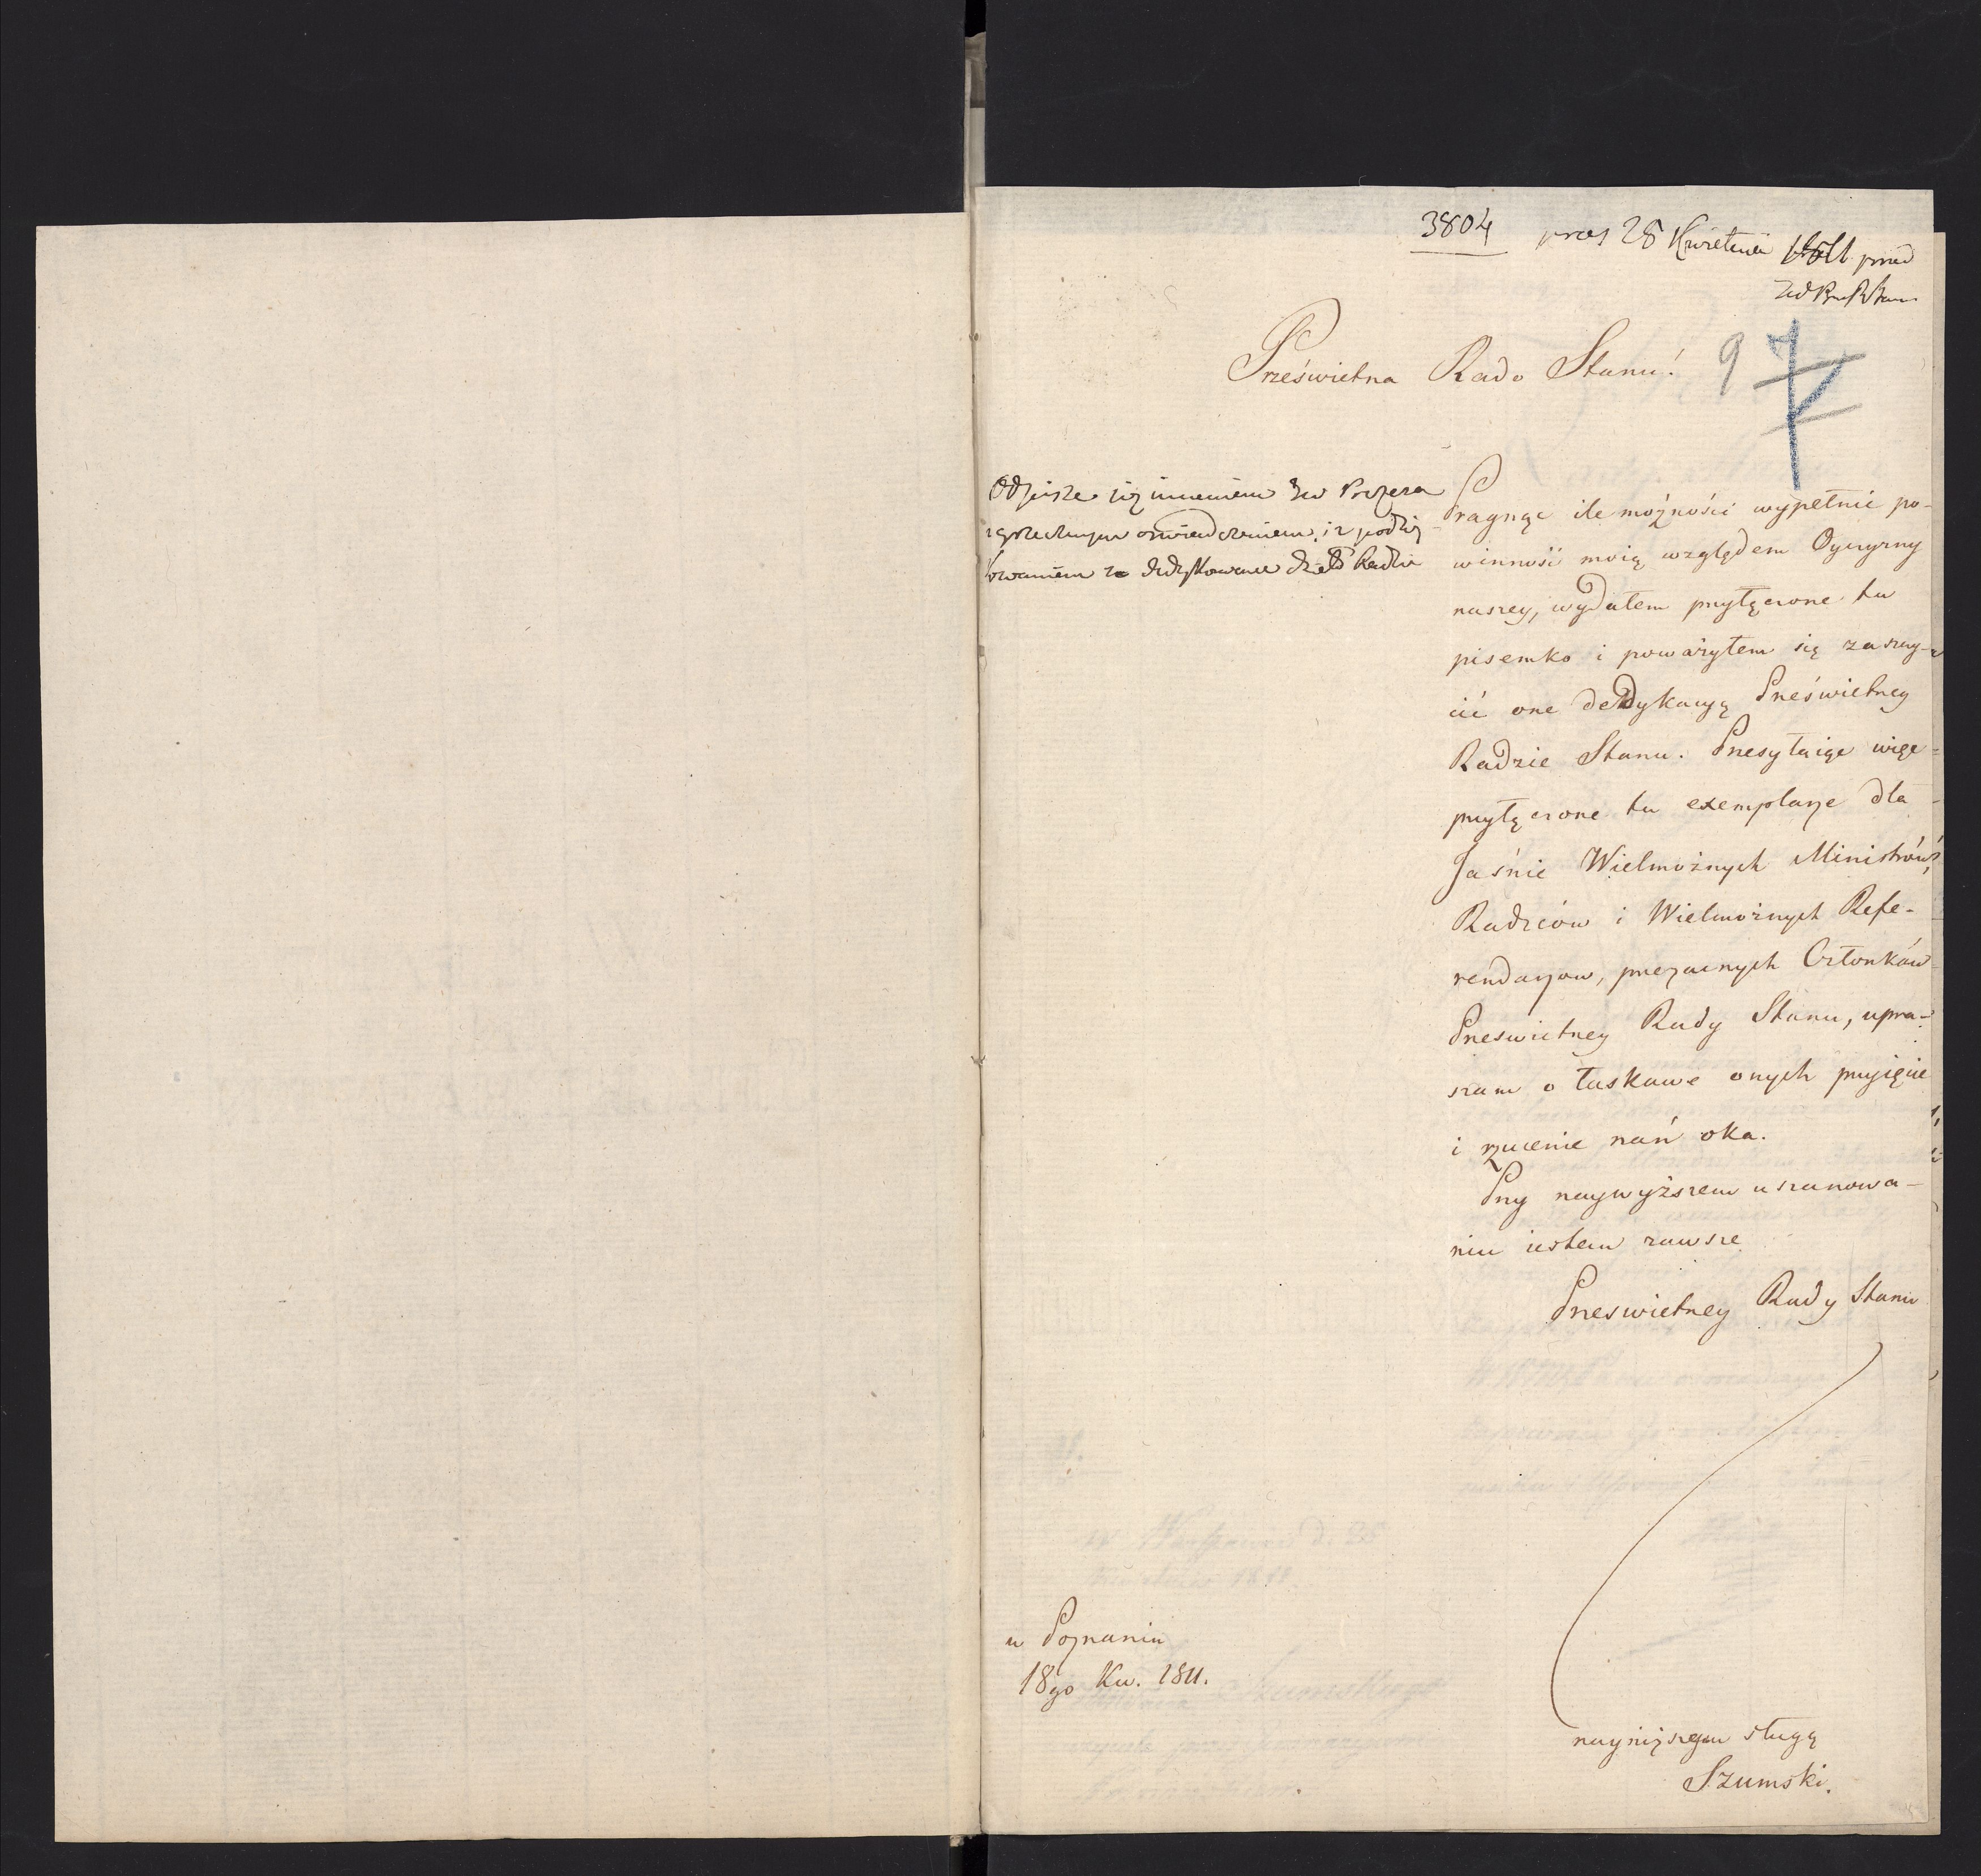 3804 præs 28 Kwietnia 1811
Prześwietna Rado Stanu!
9 7
Odpisze się imieniem
z grzecznym oświadczeniem i z podzię
kowaniem za dedykowanie dzieła Radzie
Pragnąc ile możności wypełnić po-
winność moią względem Oyczyzny
naszey, wydałem przyłączone tu
pisemko i poważyłem się zaszczy-
cić one dedykacyą Prześwietney
Radzie Stanu. Przesyłaiąc więc
przyłączone tu exemplarze dla
Jaśnie Wielmożnych Ministrów,
Radzców i Wielmożnych Refe-
rendarzow, przezacnych Członków
Przeswietney Rady Stanu, upra-
szam o łaskawe onych przyięcie
i rzucenie nań oka.
Przy naywyższem uszanowa-
niu iestem zawsze
Przeswietney Rady Stanu
w Poznaniu
18go Kw. 1811.
nayniższym sługą
Szumski.